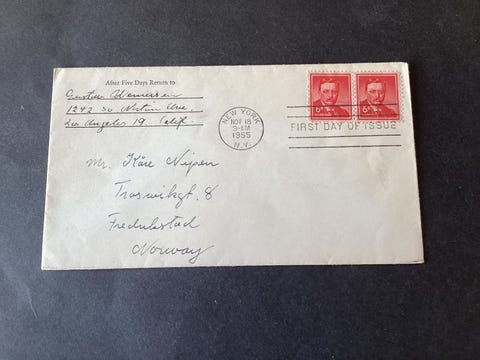 After Five Days Return to
Gustav
1242 So. Ave.
Los Angeles 19. Calif.
NEW YORK
NOV 18
9-AM
1955
N.Y.
FIRST DAY OF ISSUE
6¢ 6¢
Mr. Kåre Nipen
8
Fredrikstad
Norway